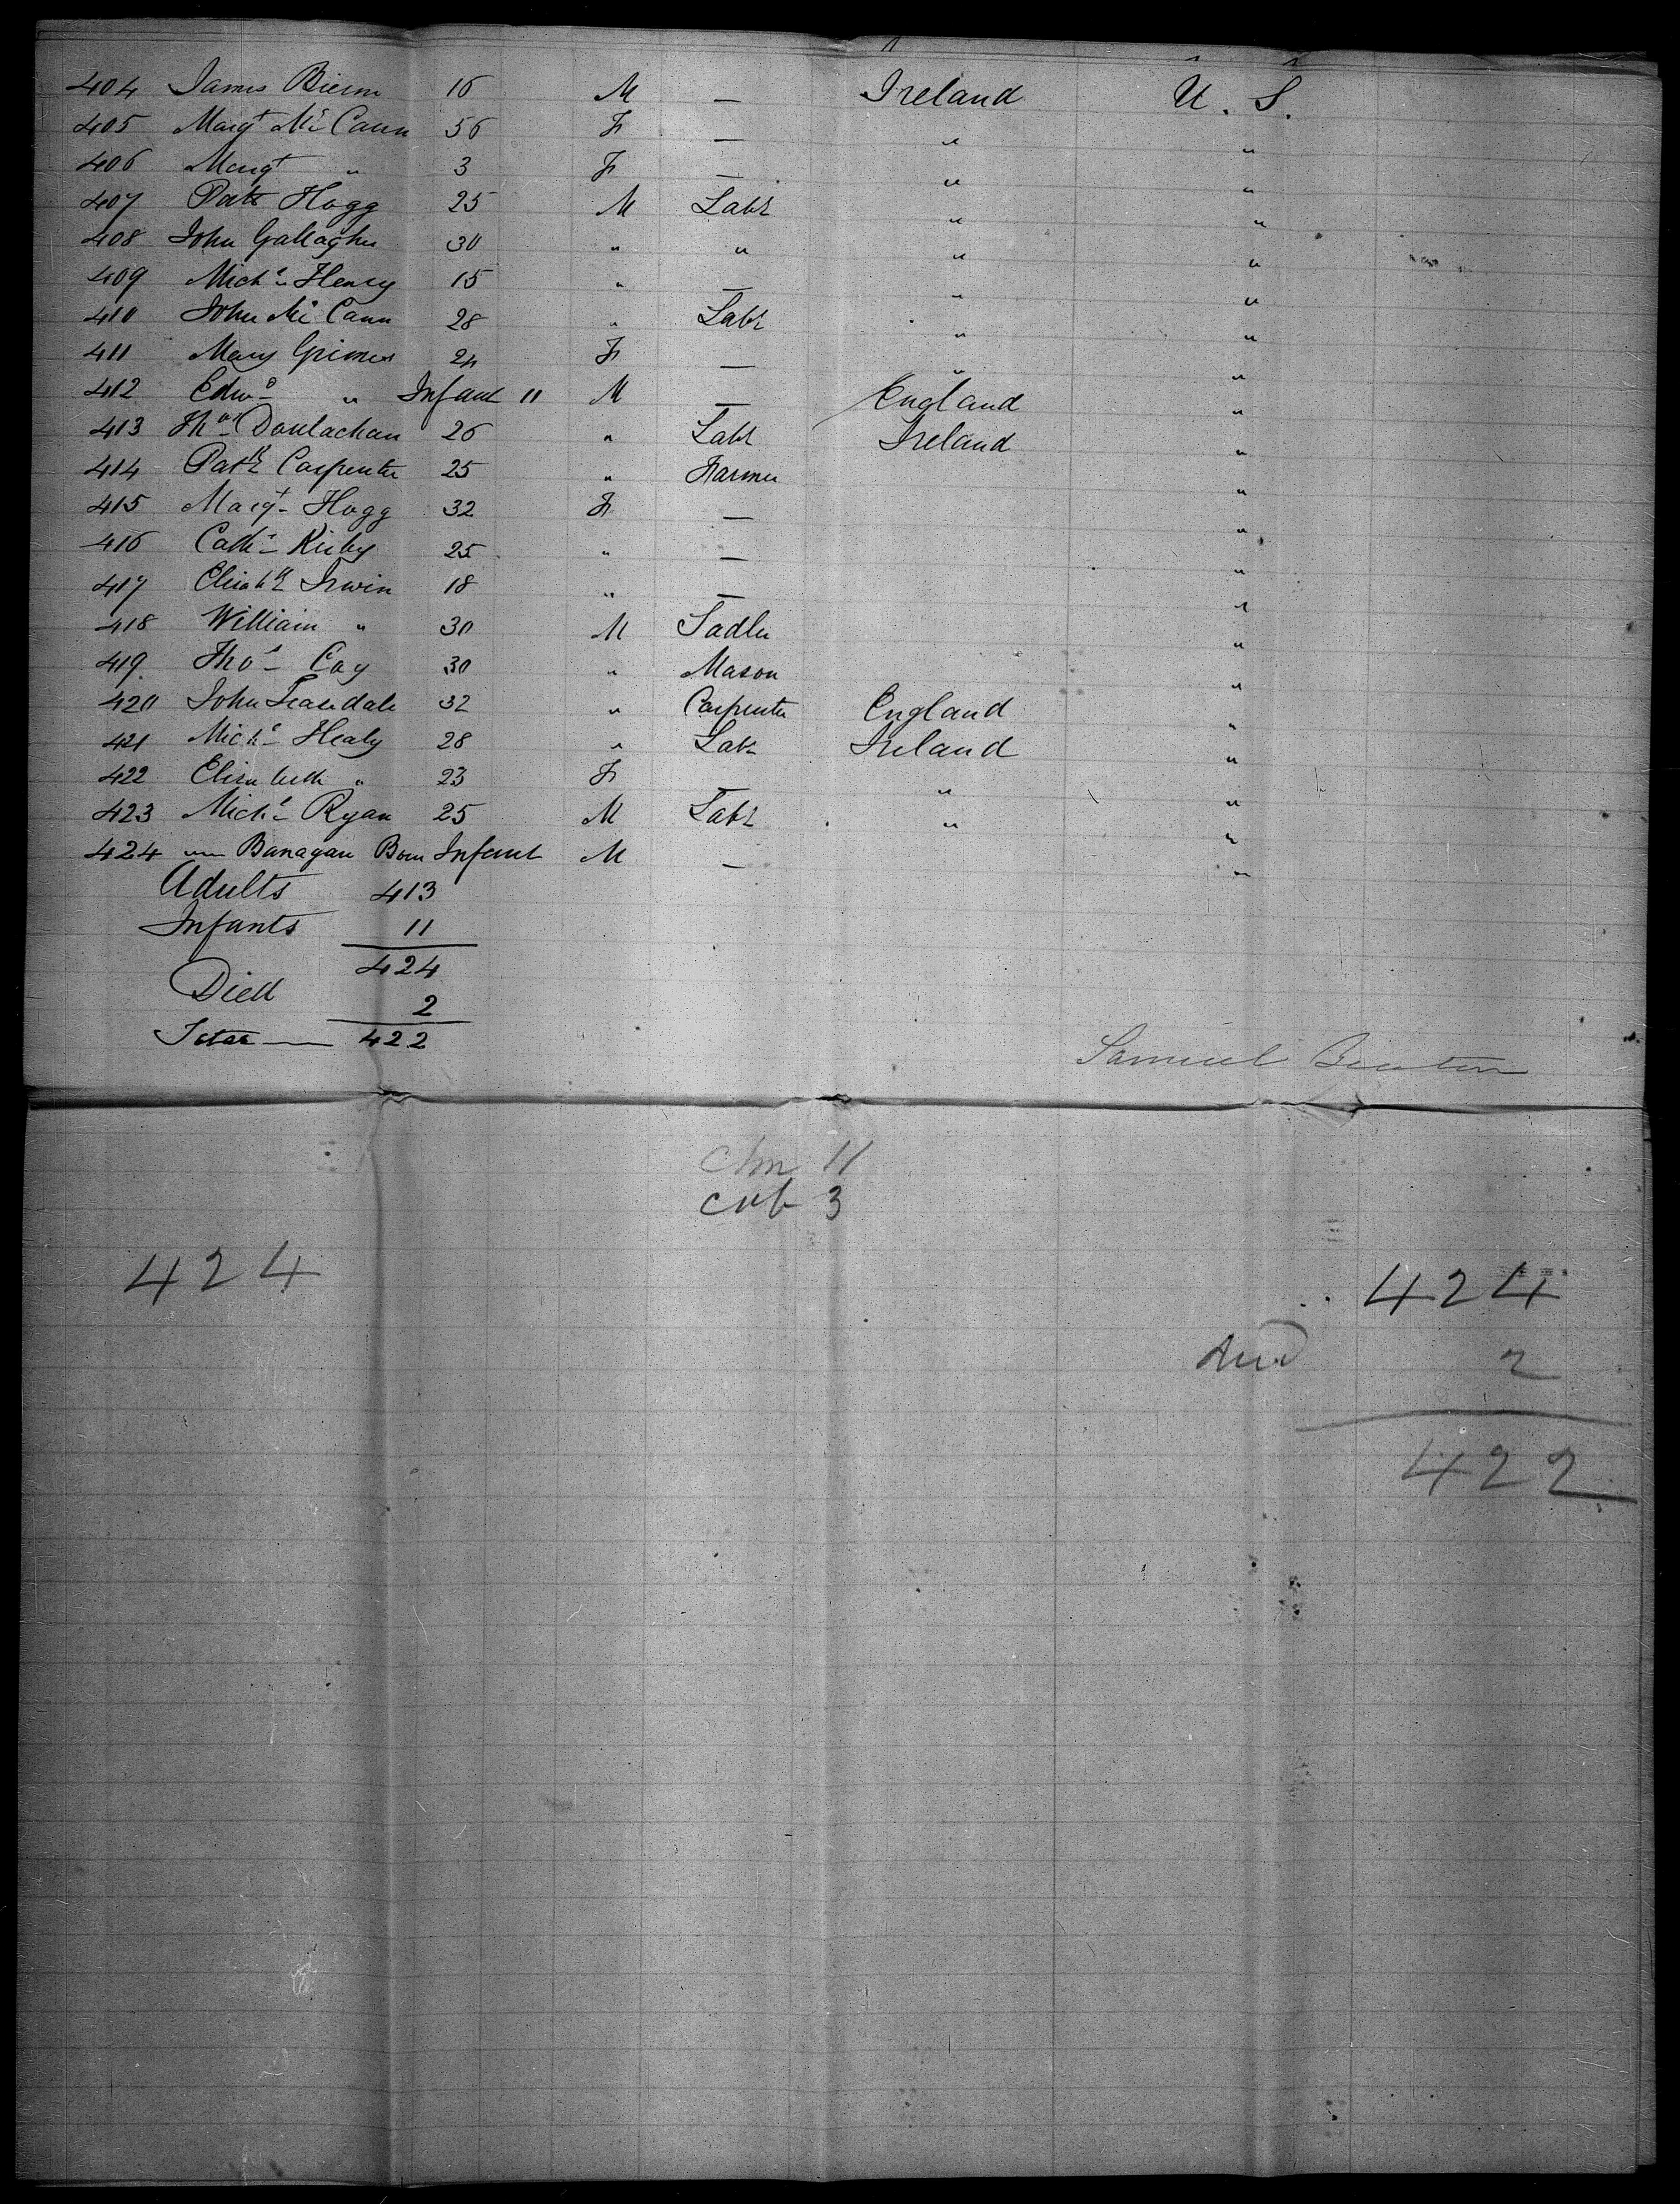 404 James Bierne 16 M — Ireland U. S.
405 Margt Mc Cann 56 F — " "
406 Margt " 3 F — " "
407 Patk Hogg 25 M Labr " "
408 John Gallagher 30 " " " "
409 Michl Henry 15 " — " "
410 John Mc Cann 28 " Labr " "
411 Mary Grimes 24 F — " "
412 Edwd " Infant 11 M — England "
413 Thos Doulachan 26 " Labr Ireland "
414 Patk Carpenter 25 " Farmer "
415 Margt Hogg 32 F — "
416 Cathe Kirby 25 " — "
417 Elizabth Irwin 18 " — "
418 William " 30 M Sadler "
419 Thos Coy 30 " Mason "
420 John Teasdale 32 " Carpenter England "
421 Michl Healy 28 " Labr Ireland "
422 Elizabeth " 23 F — " "
423 Michl Ryan 25 M Labr " "
424 — Banagan Born Infant M — "
Adults 413
Infants 11
424
Died 2
Total — 422
Samuel
11
3
424 424
2
422